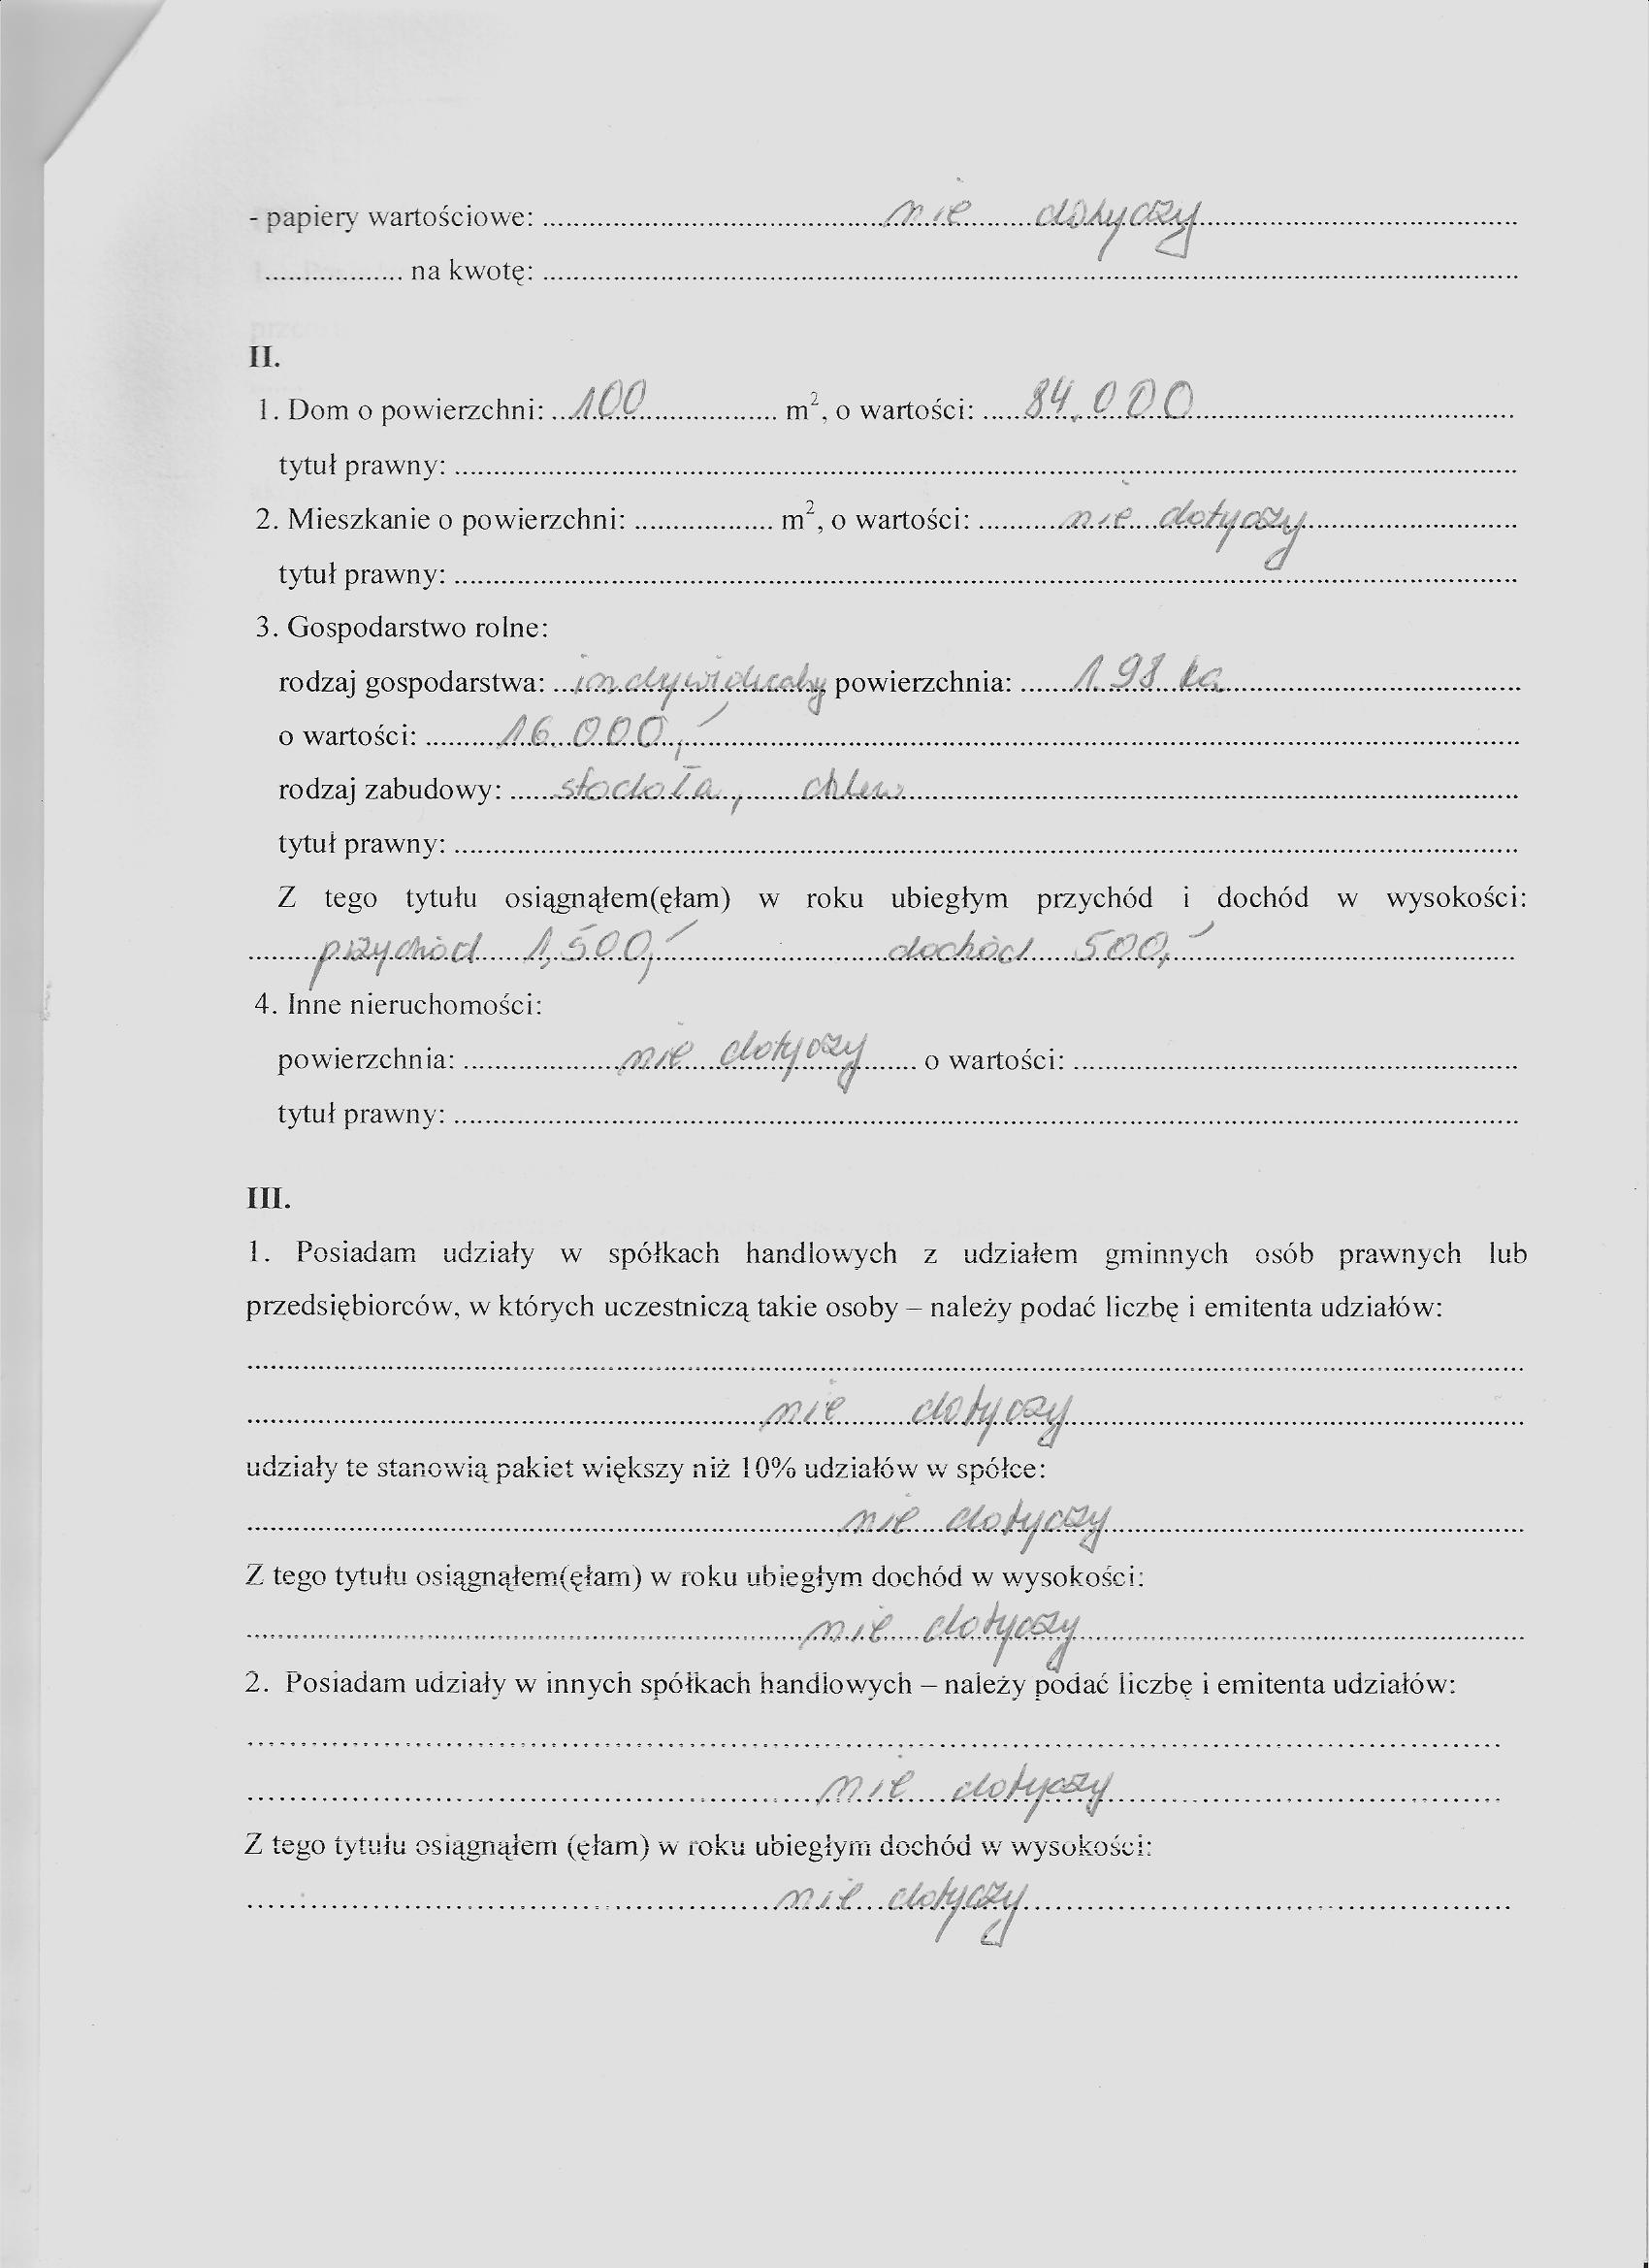 - papiery wartościowe: nie dotyczy
na kwotę:
II.
1. Dom o powierzchni: 100 m², o wartości: 84.000
tytuł prawny:
2. Mieszkanie o powierzchni: m², o wartości: nie dotyczy
tytuł prawny:
3. Gospodarstwo rolne:
rodzaj gospodarstwa: indywidualny powierzchnia: 1.98 ha
o wartości: 16.000,-
rodzaj zabudowy: stodoła, chlew
tytuł prawny:
Z tego tytułu osiągnąłem(ęłam) w roku ubiegłym przychód i dochód w wysokości:
przychód 1,500,- dochód 500,-
4. Inne nieruchomości:
powierzchnia: nie dotyczy o wartości:
tytuł prawny:
III.
1. Posiadam udziały w spółkach handlowych z udziałem gminnych osób prawnych lub
przedsiębiorców, w których uczestniczą takie osoby – należy podać liczbę i emitenta udziałów:
nie dotyczy
udziały te stanowią pakiet większy niż 10% udziałów w spółce:
nie dotyczy
Z tego tytułu osiągnąłem(ęłam) w roku ubiegłym dochód w wysokości:
nie dotyczy
2. Posiadam udziały w innych spółkach handlowych – należy podać liczbę i emitenta udziałów:
nie dotyczy
Z tego tytułu osiągnąłem (ęłam) w roku ubiegłym dochód w wysokości:
nie dotyczy